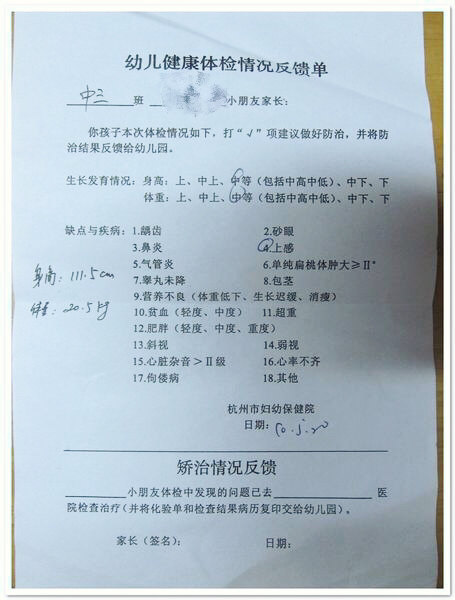 幼儿健康体检情况反馈单
中三 班 小朋友家长:
你孩子本次体检情况如下，打“√”项建议做好防治，并将防
治结果反馈给幼儿园。
生长发育情况: 身高: 上、中上、中等（包括中高中低）、中下、下
体重: 上、中上、中等（包括中高中低）、中下、下
缺点与疾病: 1.龋齿 2.砂眼
3.鼻炎 4.上感
5.气管炎 6.单纯扁桃体肿大≥Ⅱ°
身高: 111.5cm 7.睾丸未降 8.包茎
9.营养不良（体重低下、生长迟缓、消瘦）
体重: 20.5kg 10.贫血（轻度、中度） 11.超重
12.肥胖（轻度、中度、重度）
13.斜视 14.弱视
15.心脏杂音>Ⅱ级 16.心率不齐
17.佝偻病 18.其他
杭州市妇幼保健院
日期: 10.5.20
矫治情况反馈
小朋友体检中发现的问题已去 医
院检查治疗（并将化验单和检查结果病历复印交给幼儿园）。
家长（签名）: 日期: